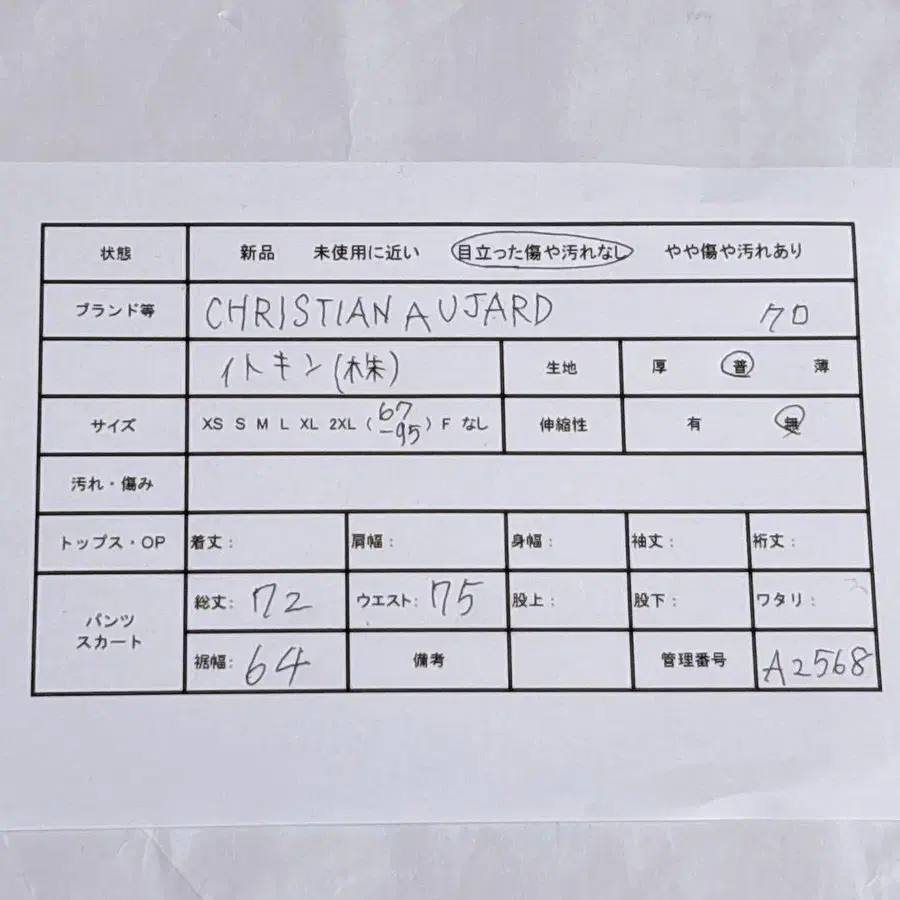 状態 新品 未使用に近い 目立った傷や汚れなし やや傷や汚れあり
ブランド等 CHRISTIAN AUJARD クロ
イトキン(株) 生地 厚 普 薄
サイズ XS S M L XL 2XL ( 67-95 ) F なし 伸縮性 有 無
汚れ・傷み
トップス・OP 着丈: 肩幅: 身幅: 袖丈: 裄丈:
パンツ スカート 総丈: 72 ウエスト: 75 股上: 股下: ワタリ:
裾幅: 64 備考 管理番号 A2568